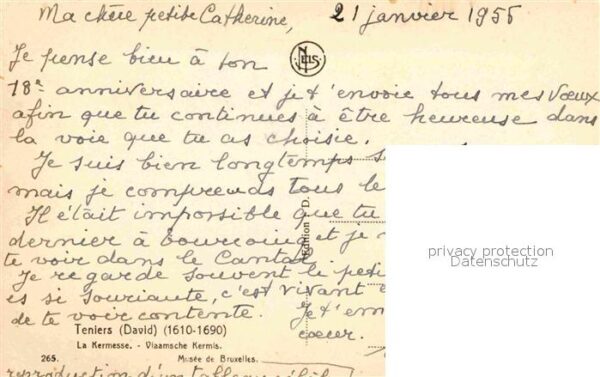 Ma chère petite Catherine, 21 janvier 1955
NELS
Je pense bien à ton
18e anniversaire et je t'envoie tous mes vœux
afin que tu continues à être heureuse dans
la voie que tu as choisie.
Je suis bien longtemps s
mais je comprends tous le
Il était impossible que tu
dernier à Tourcoing et je
te voir dans le Cantal
Je regarde souvent le peti
es si souriante, c'est vivant
de te voir contente. Je t'em
cœur.
Edition "D.
privacy protection
Datenschutz
Teniers (David) (1610-1690)
La Kermesse. - Vlaamsche Kermis.
265. Musée de Bruxelles.
reproduction d'un tableau célèb